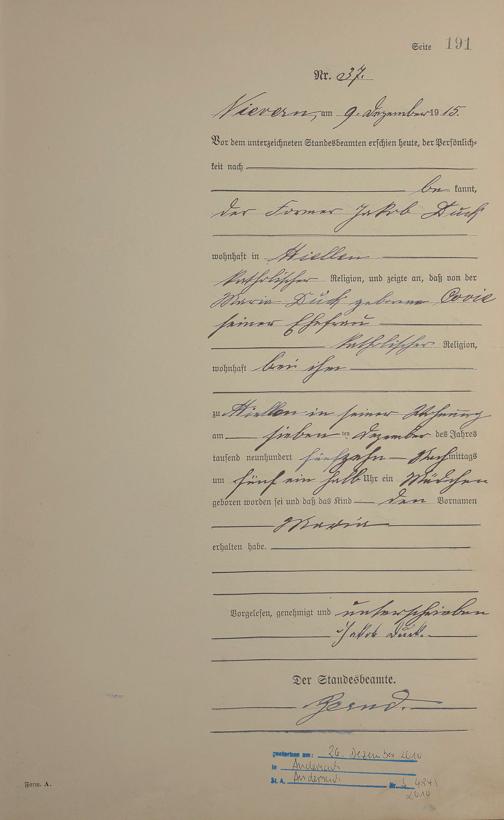 Seite 191
Nr. 37.
Nievern, am 9. Dezember 1915.
Vor dem unterzeichneten Standesbeamten erschien heute, der Persönlich-
keit nach
bekannt,
der Former Jakob Duck
wohnhaft in Miellen
katholischer Religion, und zeigte an, daß von der
Maria Duck geborene
seiner Ehefrau
katholischer Religion,
wohnhaft bei ihm
zu Miellen in seiner Wohnung
am sieben ten Dezember des Jahres
tausend neunhundert fünfzehn Nachmittags
um fünf ein halb Uhr ein Mädchen
geboren worden sei und daß das Kind den Vornamen
Maria
erhalten habe.
Vorgelesen, genehmigt und unterschrieben
Jakob Duck.
Der Standesbeamte.
gestorben am: 26. Dezember 2010
in Andernach
St. A. Andernach Nr.
Form. A.